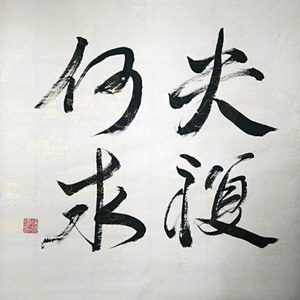 夫復
何求